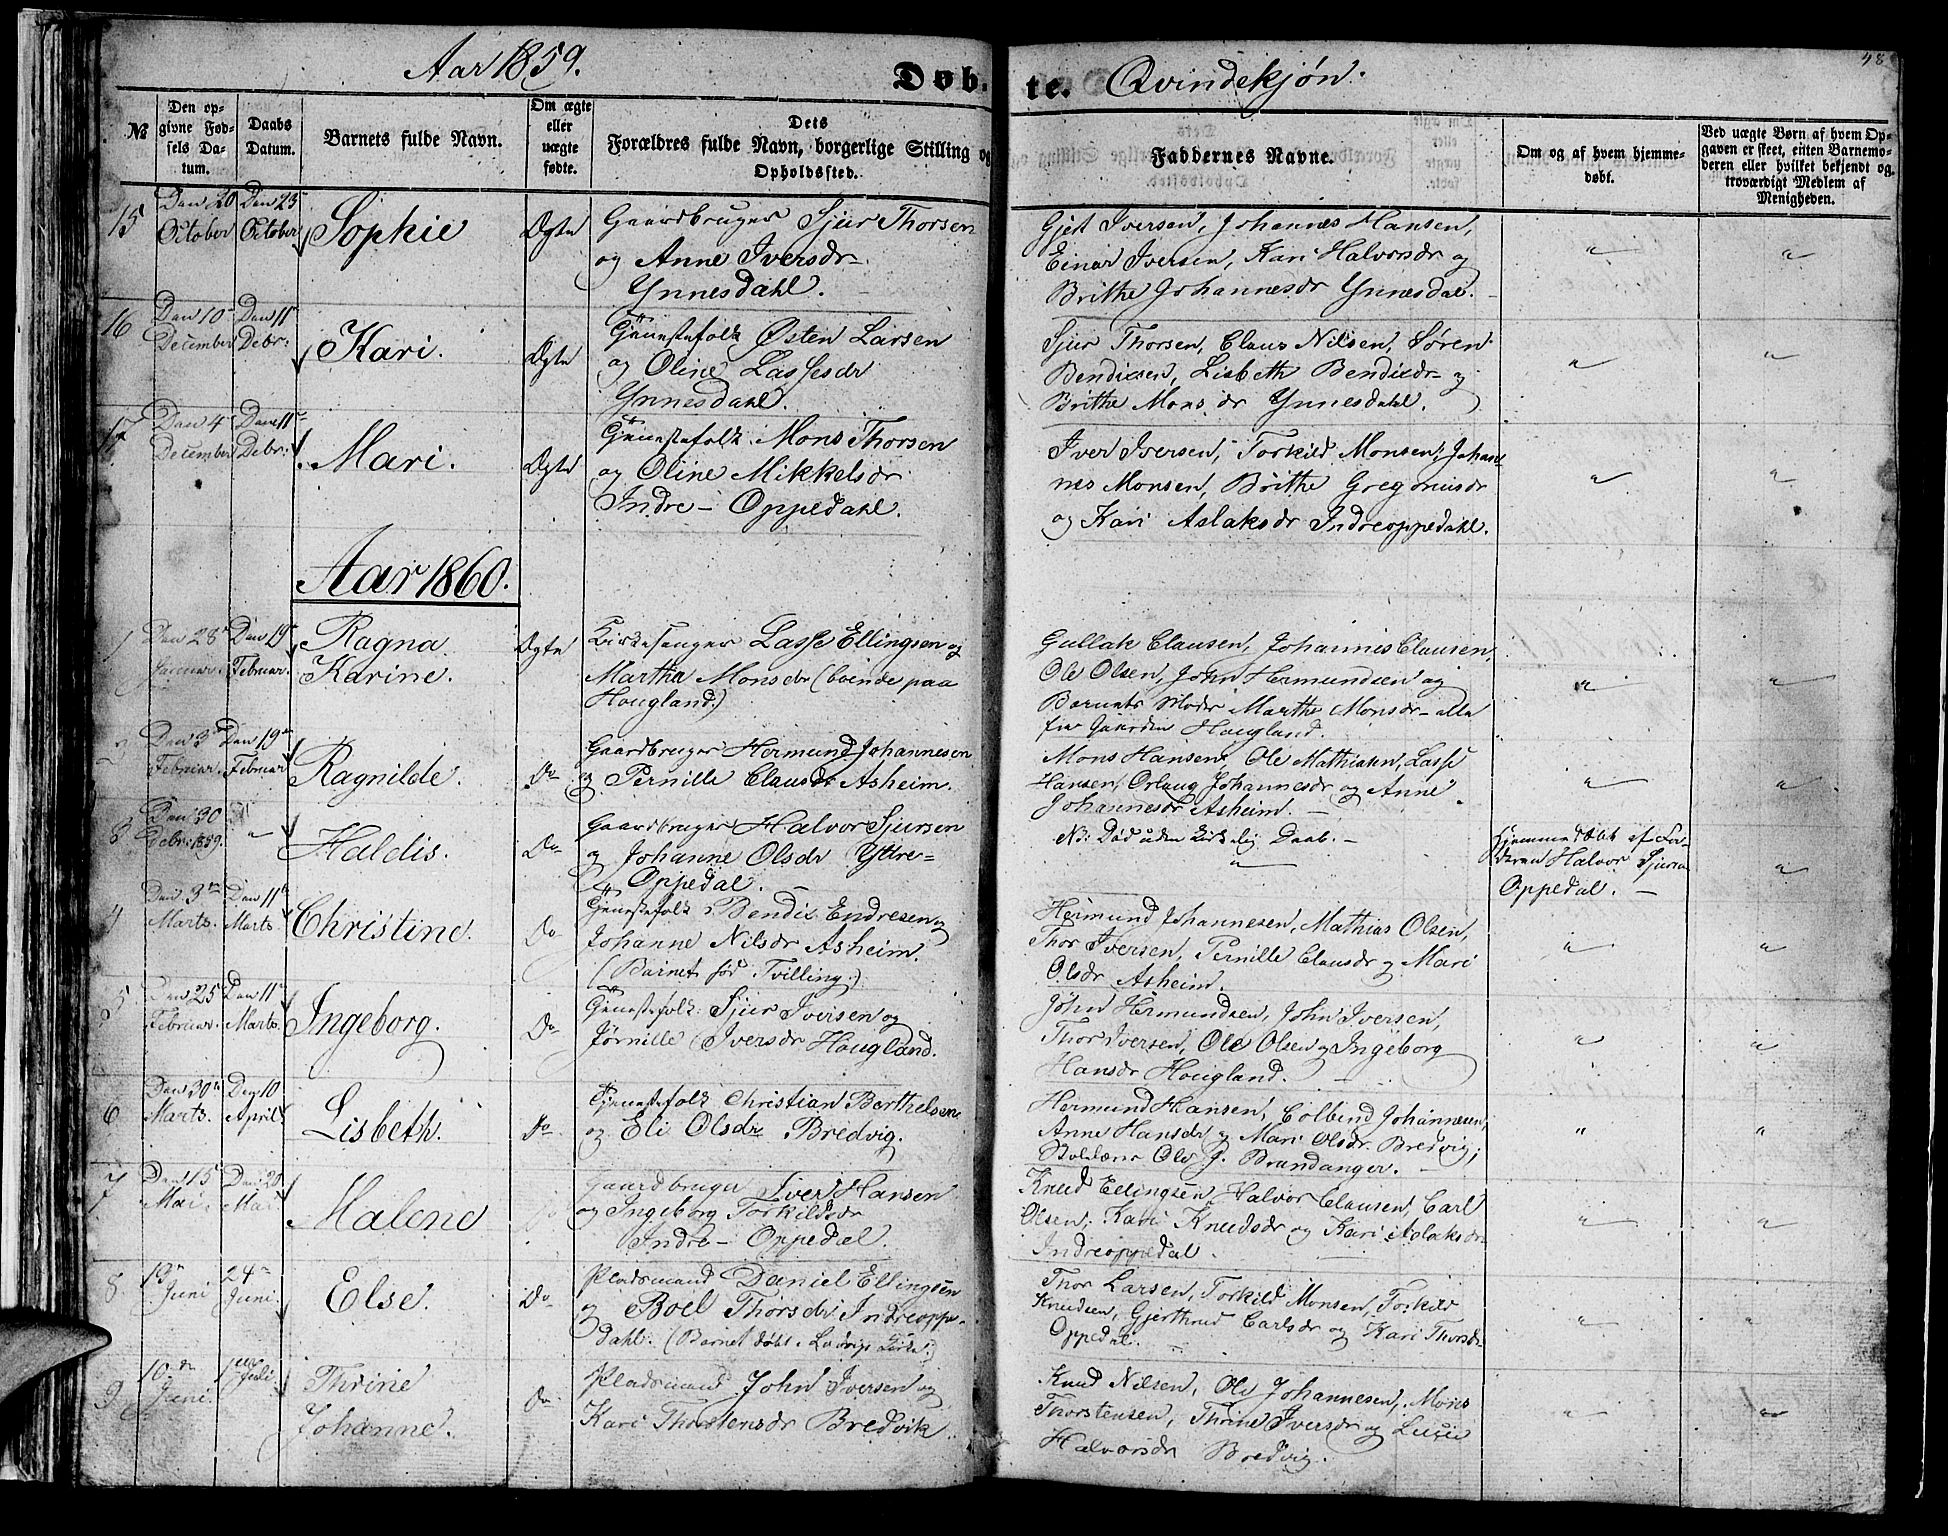 Aar 1859.
Døb-
te.
Qvindekjøn.
48
№
Den opgivne Fødsels Datum.
Daabs Datum.
Barnets fulde Navn.
Om ægte eller uægte fødte.
Dets
Forældres fulde Navn, borgerlige Stilling og
Opholdssted.
Faddernes Navne.
Om og af hvem hjemmedøbt.
Ved uægte Børn af hvem Opgaven er skeet, enten Barnemoderen eller hvilket bekjendt og troværdigt Medlem af Menigheden.
15
Den 20 October
Den 23 October
Sophie
Ægte
Gaardbruger Sjur Thorsen
og Anne Iversdr
Ynnesdahl.
Gjert Iversen, Johannes Hansen,
Einar Iversen, Kari Halvorsdr og
Brithe Johannesdr Ynnesdal.
16
Den 10 December
Den 11 Decbr:
Kari.
Ægte
Tjenestefolk Østen Larsen
og Oline Lassesdr
Ynnesdahl.
Sjur Thorsen, Claus Nilsen, Søren
Bendixen, Lisbeth Bendixdr og
Brithe Monsdr Ynnesdahl.
17
Den 4 December
Den 11 Debr:
Mari.
Ægte
Tjenestefolk Mons Thorsen
og Oline Mikkelsdr
Indre-Oppedahl.
Iver Iversen, Torkild Monsen, Johan-
nes Monsen, Brithe Gregoriusdr
og Kari Aslaksdr Indreoppedahl.
Aar 1860.
1
Den 28 Januar.
Den 19 Februar.
Ragna
Karine.
Ægte
Kirkesanger Lasse Ellingsen og
Martha Monsdr (boende paa
Hougland)
Gullak Clausen, Johannes Clausen,
Ole Olsen, John Hermundsen og
Barnets Moder Marthe Monsdr alle
fra Gaarden Hougland.
2
Den 3 Februar.
Den 19 Februar
Ragnilde.
Do
Gaardbruger Hermund Johannesen
og Pernille Clausdr Asheim.
Mons Hansen, Ole Mathiasen, Lasse
Hansen, Orlaug Johannesdr og Anne
Johannesdr Asheim.
3
Den 30 Debr: 1859.
Haldis.
Do
Gaardbruger Halvor Sjursen
og Johanne Olsdr Yttre-
Oppedal.
NB: Død uden kirkelig Daab.
Hjemmedøbt af Fa-
deren Halvor Sjursen
Oppedal.
4
Den 3 Marts.
Den 11 Marts
Christine.
Do
Tjenestefolk Bendix Endresen og
Johanne Nilsdr Asheim.
(Barnet fød Tvilling)
Hermund Johannesen, Mathias Olsen,
Thor Iversen, Pernille Clausdr og Mari
Olsdr Asheim.
5
Den 25 Februar.
Den 11 Marts.
Ingeborg.
Do
Tjenestefolk Sjur Iversen og
Jørnille Iversdr Hougland.
John Hermundsen, John Iversen,
Thor Iversen, Ole Olsen og Ingeborg
Hansdr Hougland.
6
Den 30 Marts.
Den 10 April
Lisbeth.
Do
Tjenestefolk Christian Berthelsen
og Eli Olsdr Bredvig.
Hermund Hansen, Colbend Johannesen,
Anne Hansdr og Mari Olsdr Bredvig;
Ole J. Brandanger.
7
Den 15 Mai.
Den 20 Mai.
Malene
Gaardbruger Iver Hansen
og Ingeborg Torkildsdr
Indre-Oppedal.
Knud Ellingsen, Halvor Clausen, Carl
Olsen, Kari Knudsdr og Kari Aslaksdr
Indreoppedal.
8
19 Juni
24 Juni.
Else.
Do
Pladsmand Daniel Ellingsen
og Boel Thorsdr Indreoppe-
dahl. (Barnet døbt i Ladvigs Kirke)
Thor Larsen, Torkild Monsen, Torkild
Knudsen, Gjerthrud Carlsdr og Kari Thorsdr
Oppedal.
9
10 Juni.
1 Juli
Thrine
Johanne.
Do
Pladsmand John Iversen og
Kari Thorstensdr Bredvik.
Knud Nilsen, Ole Johannesen, Mons
Thorstensen, Thrine Iversdr og Lucie
Halvorsdr Bredvig.